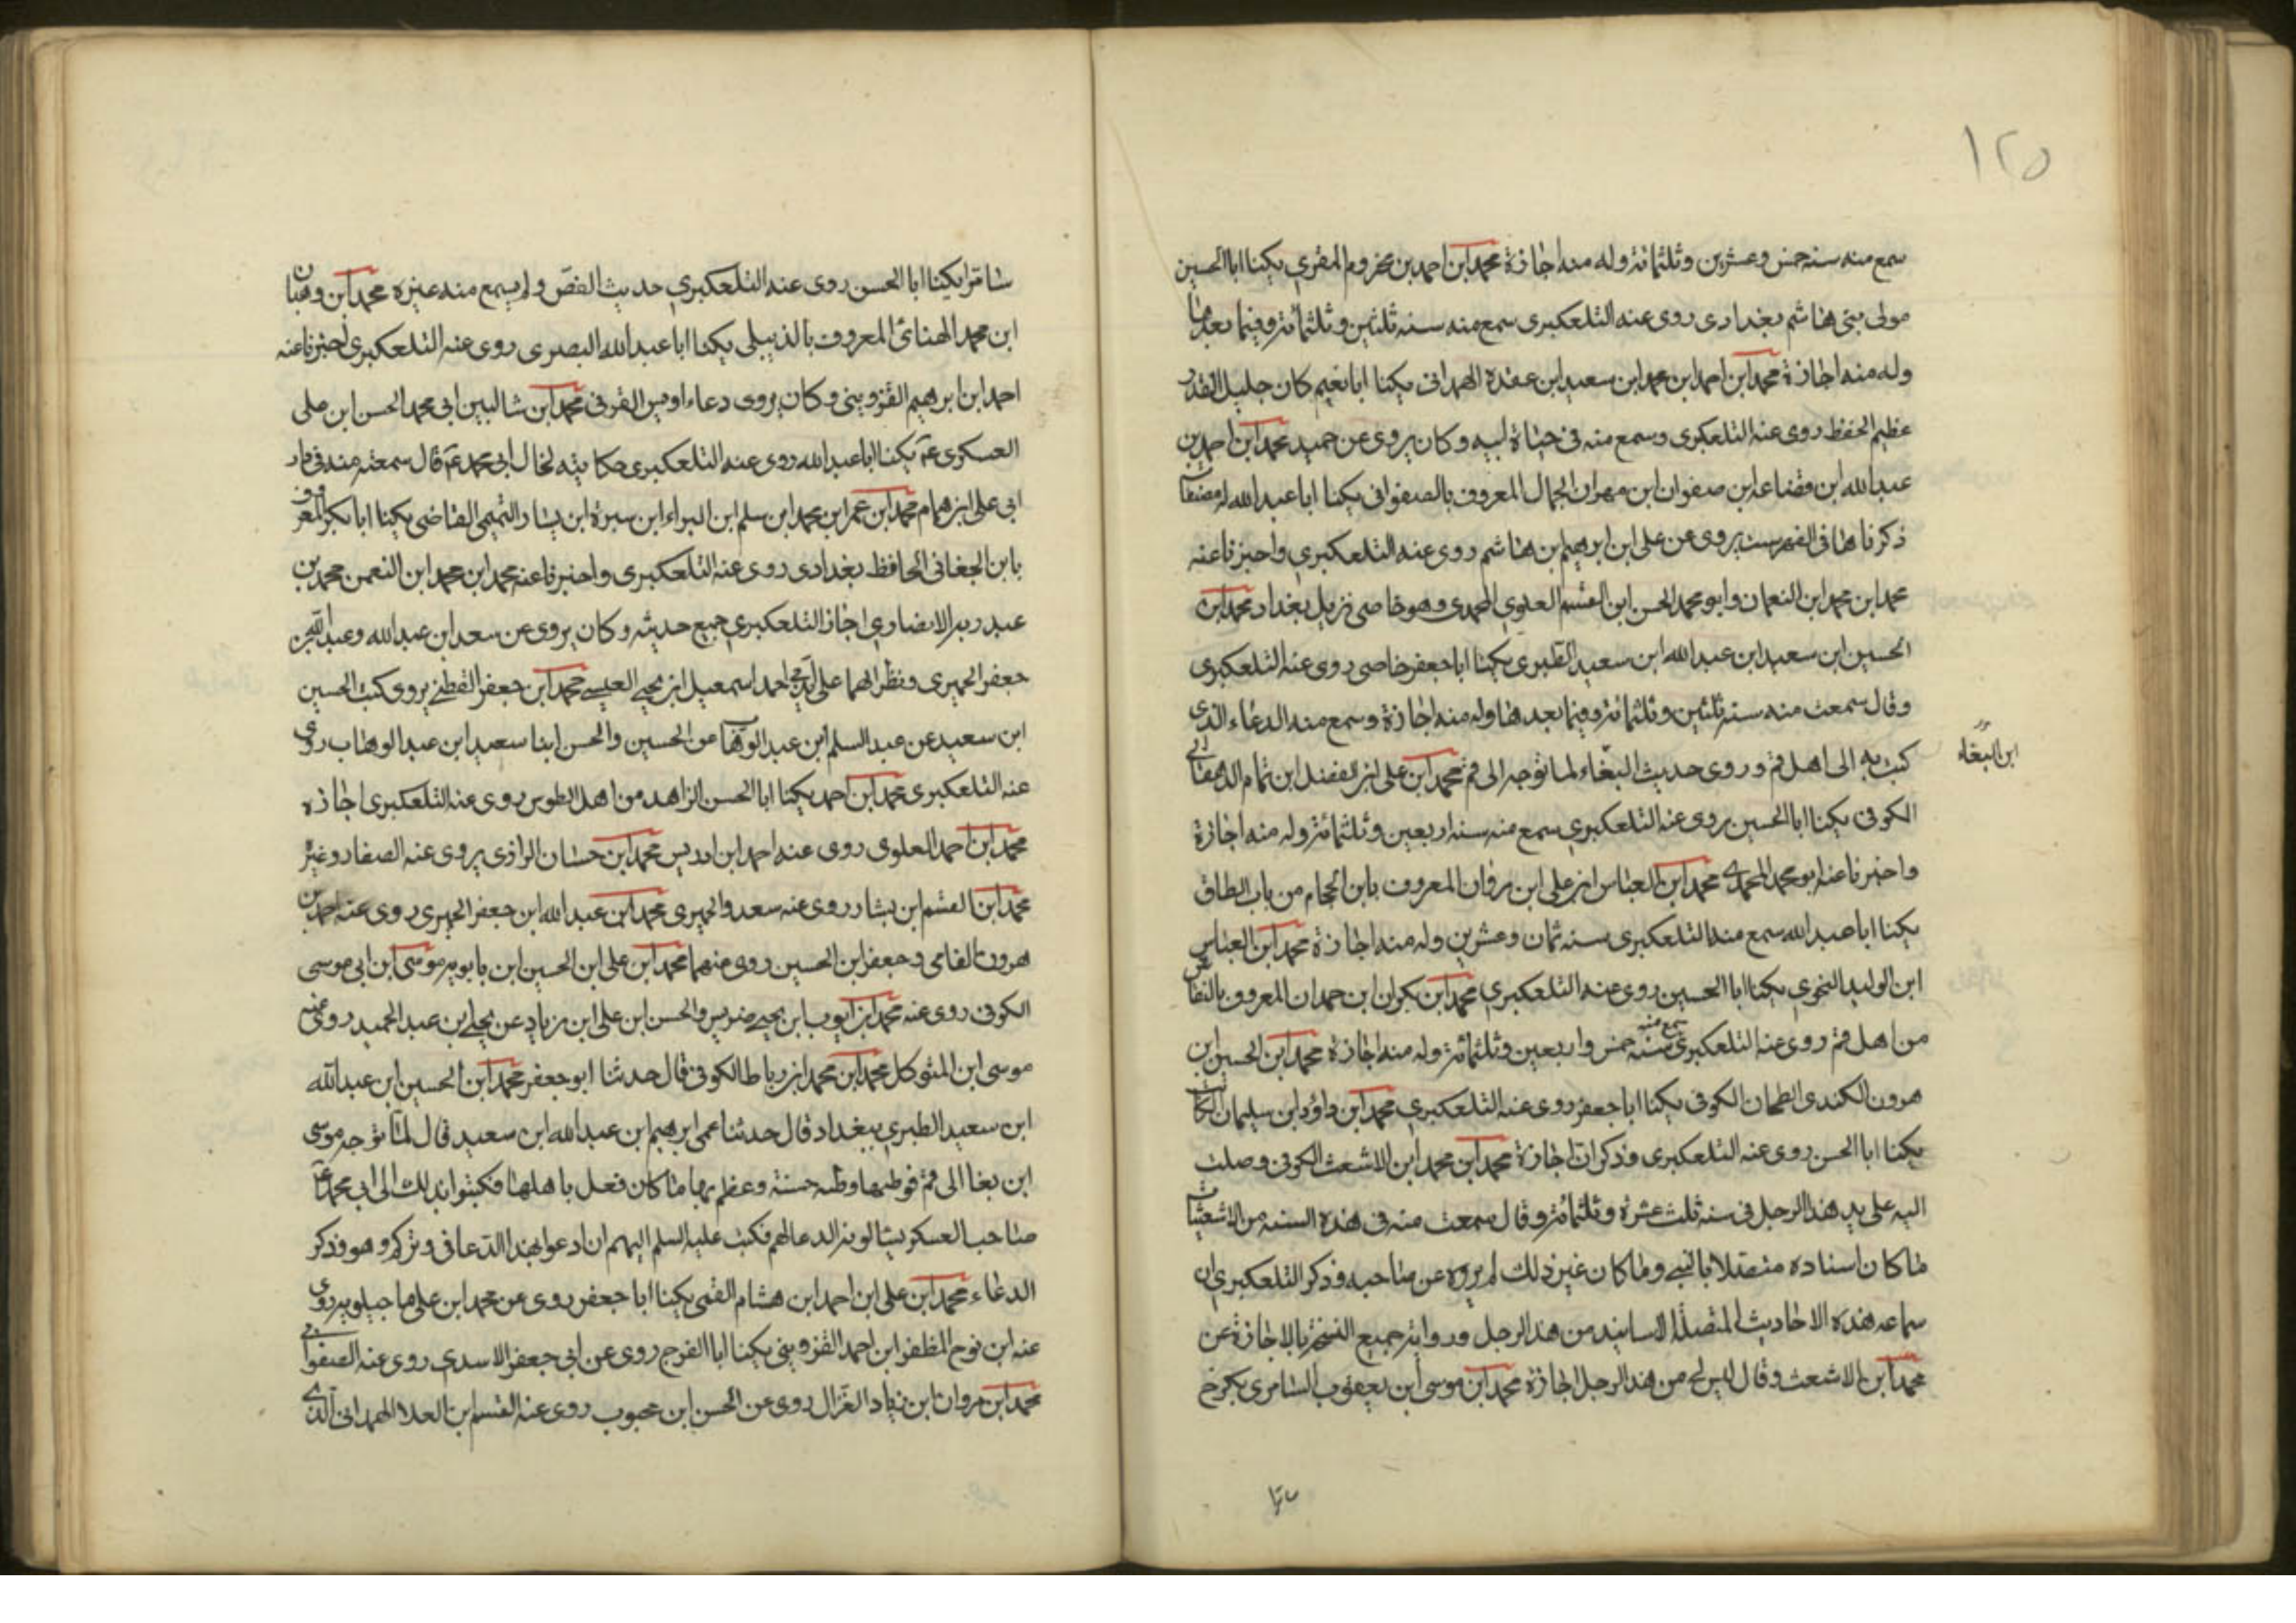 ١٢٥
سمع منه سنه خمس وعشرين وثلثمائة وله منه اجازة محمد ابن احمد بن مخزوم المقري يكنا ابا الحسين
مولى بني هاشم بغدادى روى عنه التلعكبرى سمع منه سنه ثلثين وثلثمائة وفيما بعدها
وله منه اجازة محمد ابن احمد ابن محمد ابن سعيد ابن عقدة الهمدانى يكنا ابا نعيم كان جليل القدر
عظيم الحفظ روى عنه التلعكبرى وسمع منه فى حياة ابيه وكان يروى عن حميد محمد ابن احمد بن
عبد الله ابن قضاعه ابن صفوان ابن مهران الجمال المعروف بالصفوانى يكنا ابا عبد الله له مصنفات
ذكرناها فى الفهرست يروى عن على ابن ابرهيم بن هاشم روى عنه التلعكبري واخبرنا عنه
محمد ابن محمد ابن النعمان وابو محمد الحسن ابن القسم العلوي المحمدى وهو خاصى نزيل بغداد محمد ابن
الحسين ابن سعيد ابن عبد الله ابن سعيد الطبرى يكنا ابا جعفر خاصى روى عنه التلعكبرى
وقال سمعت منه سنه ثلثين وثلثمائة وفيما بعدها وله منه اجازة وسمع منه الدعاء الذى
كتب به الى اهل قم وروى حديث البغاء لما توجه الى قم محمد ابن على ابن الفضل ابن تمام الدهقانى
ابن البغاء
الكوفى يكنا ابا الحسين روى عنه التلعكبري سمع منه سنه اربعين وثلثمائة وله منه اجازة
واخبرنا عنه ابو محمد المحمدي محمد ابن العباس ابن على ابن مروان المعروف بابن الحجام من باب الطاق
يكنا ابا عبد الله سمع منه التلعكبرى سنه ثمان وعشرين وله منه اجازة محمد ابن العباس
ابن الوليد النحوي يكنا ابا الحسين روى عنه التلعكبري محمد ابن بكران ابن حمدان المعروف بالنقاش
من اهل قم روى عنه التلعكبري سمع منه سنه خمس واربعين وثلثمائة وله منه اجازة محمد ابن الحسين ابن
هرون الكندى الطحان الكوفى يكنا ابا جعفر روى عنه التلعكبري محمد ابن داود ابن سليمان الكاتب
يكنا ابا الحسن روى عنه التلعكبرى وذكر ان اجازة محمد ابن محمد ابن الاشعث الكوفى وصلت
اليه على يد هذا الرجل فى سنه ثلث عشرة وثلثمائة وقال سمعت منه فى هذه السنه من الاشعثيات
ما كان اسناده متصلا بالنبي وما كان غير ذلك لم يروه عن صاحبه وذكر التلعكبري ان
سماعه هذه الاحاديث المتصلة الاسانيد من هذا الرجل ورواية جميع النسخة بالاجازة عن
محمد ابن الاشعث وقال ليس لى من هذا الرجل اجازة محمد ابن موسى ابن يعقوب السامرى بكرخ
سامرا
سامرا يكنا ابا الحسن روى عنه التلعكبري حديث القص ولم يسمع منه غيره محمد ابن وهبان
ابن محمد الهنائى المعروف بالذيبلى يكنا ابا عبد الله البصرى روى عنه التلعكبرى اخبرنا عنه
احمد ابن ابرهيم القزوينى وكان يروى دعاء اويس القرنى محمد ابن شا ابى محمد الحسن ابن على
العسكرى عم يكنا ابا عبد الله روى عنه التلعكبرى حكاية لخال ابى محمد عم قال سمعته منه فى دار
ابى على ابن همام محمد ابن عمر ابن محمد ابن سلم ابن البراء ابن سبرة ابن يسار التميمي القاضى يكنا ابا بكر المعروف
بابن الجغانى الحافظ بغدادى روى عنه التلعكبرى واخبرنا عنه محمد ابن محمد ابن النعمن محمد بن
عبد ربه الانصاري اجاز التلعكبري جميع حديثه وكان يروى عن سعد ابن عبد الله وعبد الله بن
جعفر الحميرى ونظرائهما على احمد اسمعيل ابن يحيى العبسى محمد ابن جعفر القطنى يروى كتب الحسين
ابن سعيد عن عبد السلم ابن عبد الوهاب عن الحسين والحسن ابنا سعيد ابن عبد الوهاب روى
عنه التلعكبرى محمد ابن احمد يكنا ابا الحسن الزاهد من اهل الطوس روى عنه التلعكبرى اجازه
محمد ابن احمد العلوى روى عنه احمد ابن ادريس محمد ابن حسان الرازى يروى عنه الصفار وغيره
محمد ابن القسم ابن بشار روى عنه سعد والحميرى محمد ابن عبد الله ابن جعفر الحميرى روى عنه احمد بن
هرون الفامى وجعفر ابن الحسين روى عنهما محمد ابن على ابن الحسين ابن بابويه موسى ابن ابى موسى
الكوفى روى عنه محمد ابن ايوب ابن يحيى ضريس والحسن ابن على ابن زياد عن يحيى بن عبد الحميد روى عنه
موسى ابن المتوكل محمد ابن محمد ابن رباط الكوفى قال حدثنا ابو جعفر محمد ابن الحسين ابن عبد الله
ابن سعيد الطبري ببغداد قال حدثنا عمى ابرهيم ابن عبد الله ابن سعيد قال لما توجه موسى
ابن بغا الى قم فوطيها وطئه خشنة وعظم بها ما كان فعل باهلها فكتبوا بذلك الى ابى محمد عم
صاحب العسكر يسالونه الدعا لهم فكتب عليه السلم اليهم ان ادعوا بهذا الدعا فى وتركم وهو وذكر
الدعاء محمد ابن على ابن احمد ابن هشام القمى يكنا ابا جعفر روى عن محمد ابن على ماجيلويه روى
عنه ابن نوح المظفر ابن احمد القزوينى يكنا ابا الفرج روى عن ابى جعفر الاسدي روى عنه الصفوانى
محمد ابن مروان ابن زياد الغزال روى عن الحسن ابن محبوب روى عنه القسم ابن العلا الهمدانى الذي